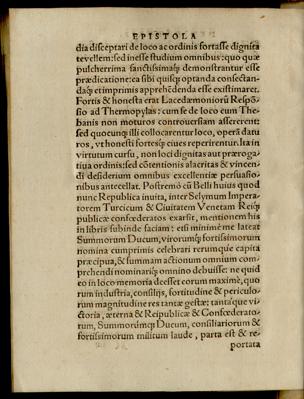 EPISTOLA
dia disceptari de loco ac ordinis fortasse dignita
te vellem: sed inesse studium omnibus: quo quæ
pulcherrima sanctissimaq́; demonstrantur esse
prædicatione: ea sibi quisq; optanda consectan-
daq́; et imprimis apprehendenda esse existimaret.
Fortis & honesta erat Lacedæmoniorũ Respõ-
sio ad Thermopylas: cum se de loco eum The-
banis non moturos controversiam assererent:
sed quocunq; illi collocarentur loco, operã datu
ros, vt honesti fortesq́; ciues reperirentur. Ita in
virtutum cursu, non loci dignitas aut præroga-
tiua ordinis: sed cõtentionis alacritas & vincen-
di desiderium omnibus excellentiæ persuasio-
nibus antecellat. Postremò cũ Belli huius quod
nunc Republica inuita, inter Selymum Impera-
torem Turcicum & Ciuitatem Venetam Reiq́;
publicæ confœderatos exarsit, mentionem his
in libris subinde faciam: etsi minimè me lateat
Summorum Ducum, virorumq́; fortissimorum
nomina cumprimis celebrari rerumque capita
præcipua, & summam actionum omnium com-
prehendi nominariq́; omnino debuisse: ne quid
eo in loco memoria deesset eorum maximè, quo
rum industria, consilijs, fortitudine & periculo-
rum magnitudine res tantæ gestæ: tantaque vi-
ctoria, æterna & Reipublicæ & Confœderato-
rum, Summorumq́; Ducum, consiliariorum &
fortissimorum militum laude, parta est & re-
portata